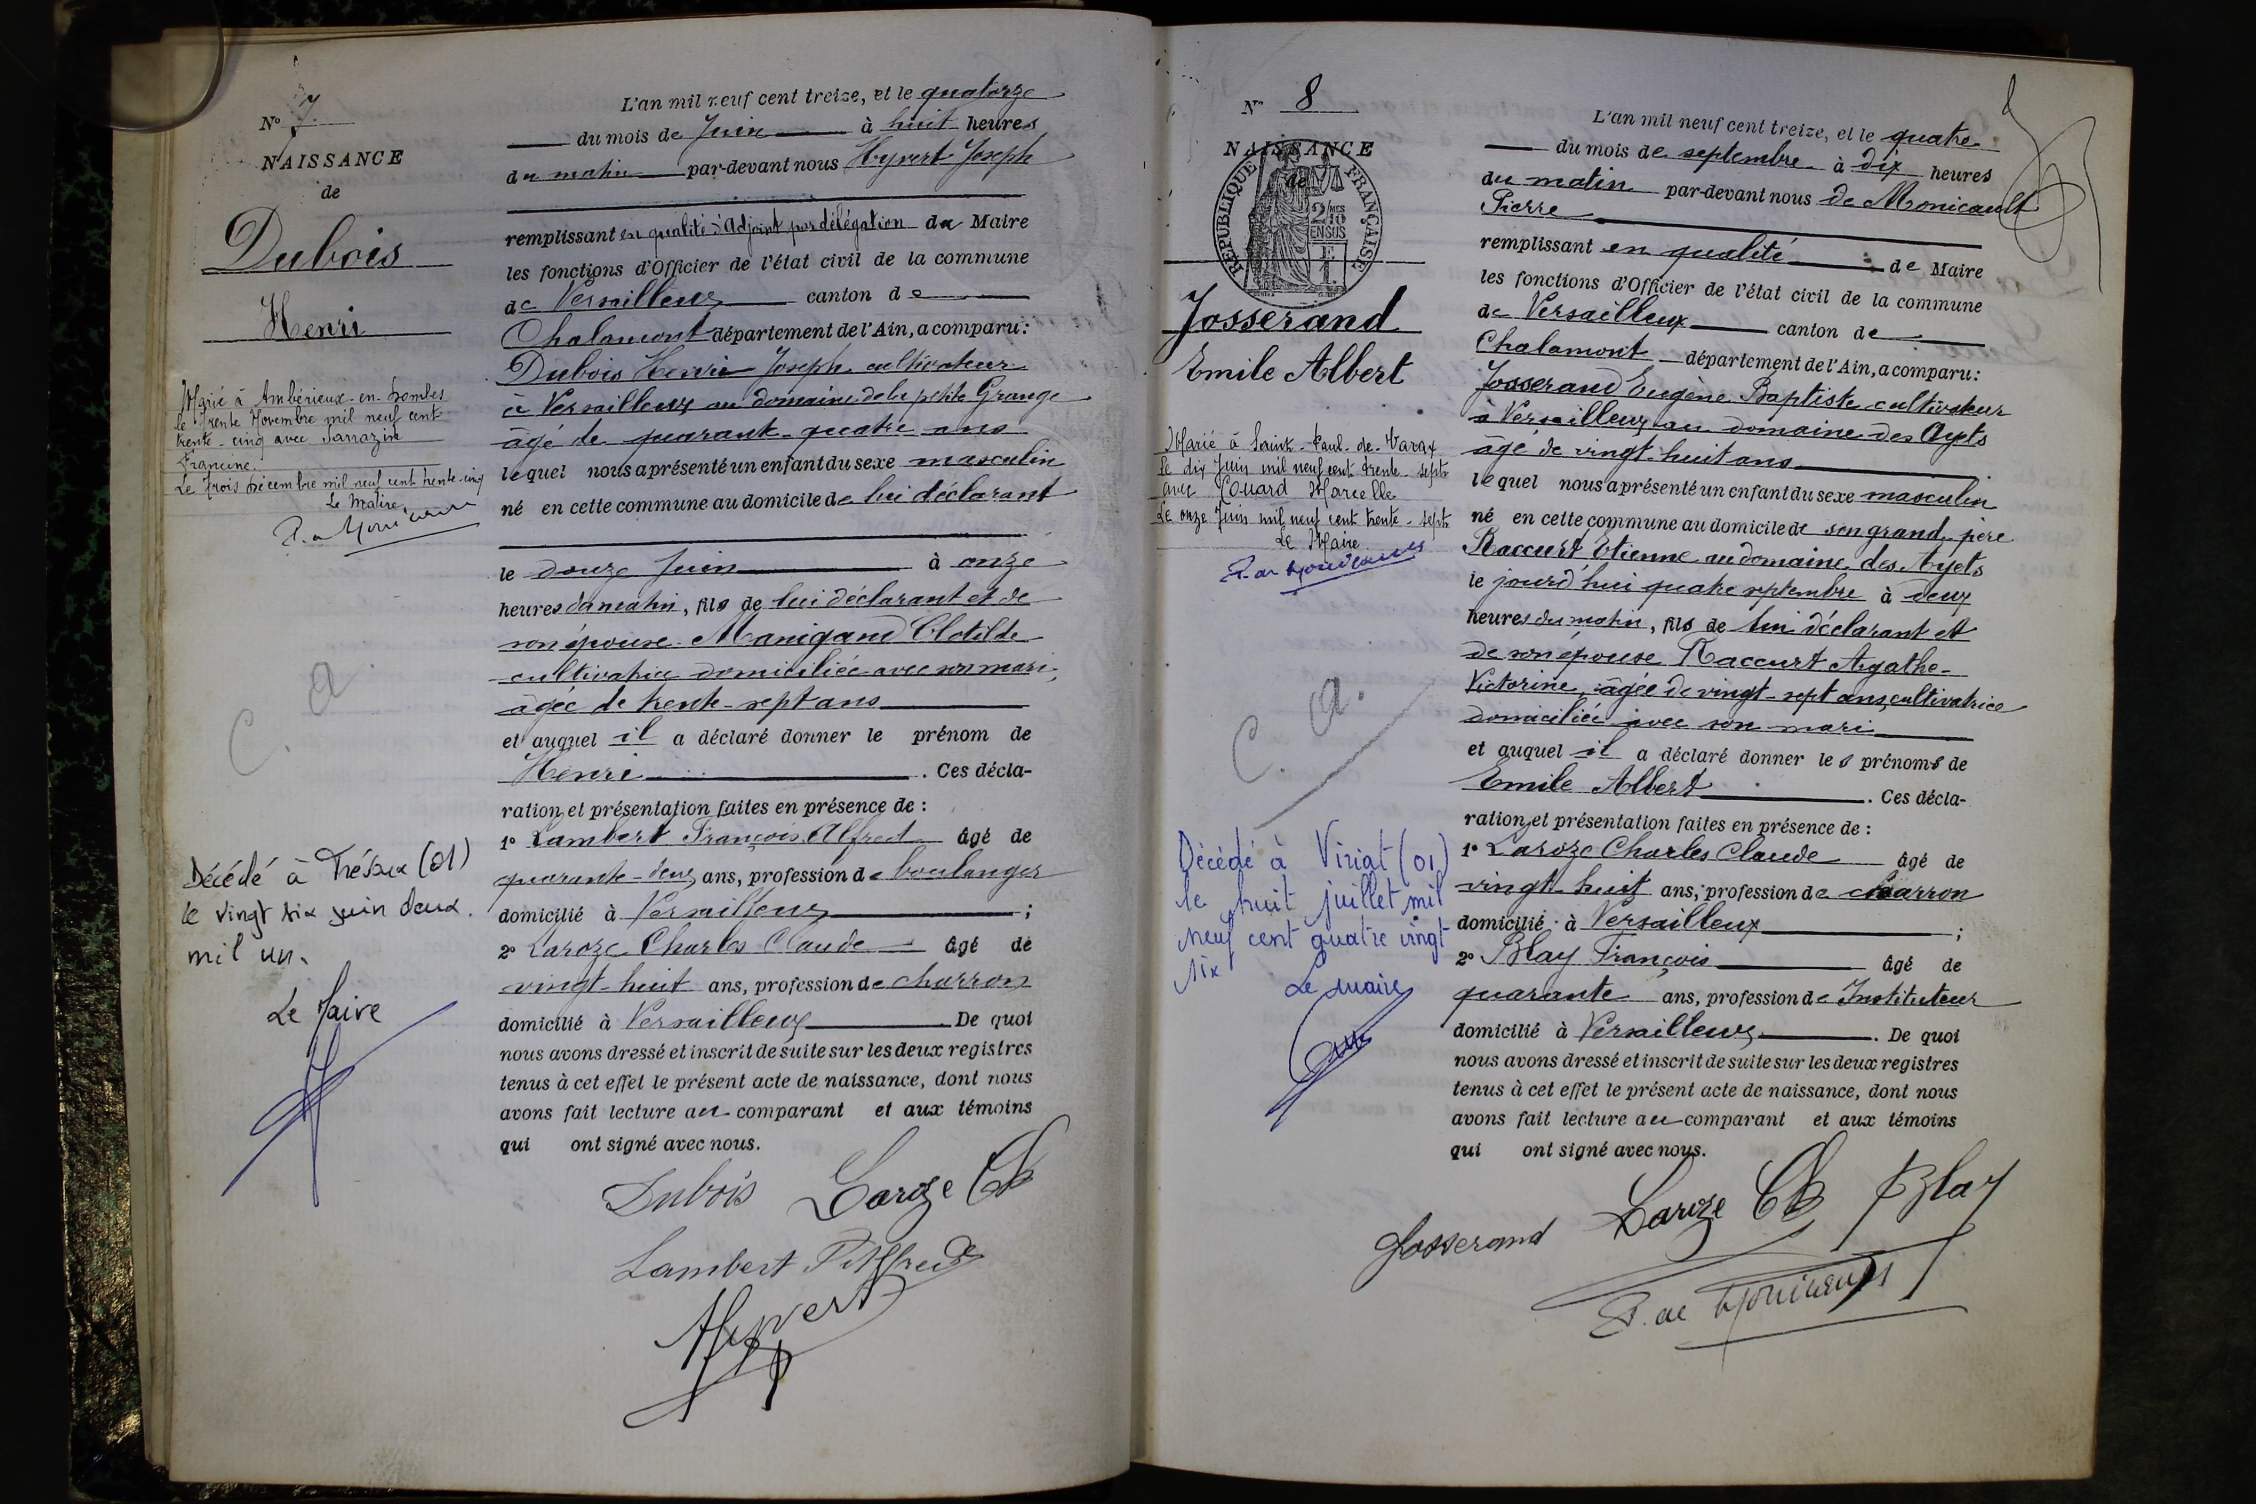 N° 7
NAISSANCE
de
Dubois
Henri
Marié à Ambérieux-en-Dombes
le trente Novembre mil neuf cent
trente-cinq avec Sarrazin
Francine.
Le trois décembre mil neuf cent trente-cinq
Le Maire
C. a.
Décédé à Trévoux (01)
le vingt six juin deux
mil un.
Le Maire
L'an mil neuf cent treize, et le quatorze
du mois de Juin à huit heures
du matin par-devant nous Hyvert Joseph
remplissant en qualité d'Adjoint par délégation du Maire
les fonctions d'Officier de l'état civil de la commune
de Versailleux canton de
Chalamont département de l'Ain, a comparu:
Dubois Henri Joseph cultivateur
à Versailleux au domaine de la petite Grange
âgé de quarante-quatre ans
lequel nous a présenté un enfant du sexe masculin
né en cette commune au domicile de lui déclarant
le douze juin à onze
heures du matin, fils de lui déclarant et de
son épouse Manigand Clotilde
cultivatrice domiciliée avec son mari,
âgée de trente-sept ans
et auquel il a déclaré donner le prénom de
Henri. Ces décla-
ration et présentation faites en présence de :
1° Lambert François Alfred âgé de
quarante-deux ans, profession de boulanger
domicilié à Versailleux ;
2° Laroze Charles Claude âgé de
vingt-huit ans, profession de charron
domicilié à Versailleux De quoi
nous avons dressé et inscrit de suite sur les deux registres
tenus à cet effet le présent acte de naissance, dont nous
avons fait lecture au comparant et aux témoins
qui ont signé avec nous.
Dubois Laroze Ch
Lambert F Alfred
Hyvert
N° 8
NAISSANCE
de
RÉPUBLIQUE FRANÇAISE
2/10 MES
EN SUS
Josserand
Emile Albert
Marié à Saint-Paul-de-Varax
le dix Juin mil neuf cent trente-sept
avec Couard Marcelle
Le onze Juin mil neuf cent trente-sept
Le Maire
C. a.
Décédé à Viriat (01)
le huit juillet mil
neuf cent quatre vingt
six
Le maire
L'an mil neuf cent treize, et le quatre
du mois de septembre à dix heures
du matin par-devant nous de Monicault
Pierre
remplissant en qualité de Maire
les fonctions d'Officier de l'état civil de la commune
de Versailleux canton de
Chalamont département de l'Ain, a comparu:
Josserand Eugène Baptiste cultivateur
à Versailleux au domaine des Ayets
âgé de vingt-huit ans
lequel nous a présenté un enfant du sexe masculin
né en cette commune au domicile de son grand père
Raccurt Etienne au domaine des Ayets
le jourd'hui quatre septembre à deux
heures du matin, fils de lui déclarant et
de son épouse Raccurt Agathe-
Victorine, âgée de vingt-sept ans, cultivatrice
domiciliée avec son mari
et auquel il a déclaré donner les prénoms de
Emile Albert. Ces décla-
ration et présentation faites en présence de :
1° Laroze Charles Claude âgé de
vingt-huit ans, profession de charron
domicilié à Versailleux ;
2° Blay François âgé de
quarante ans, profession de Instituteur
domicilié à Versailleux. De quoi
nous avons dressé et inscrit de suite sur les deux registres
tenus à cet effet le présent acte de naissance, dont nous
avons fait lecture au comparant et aux témoins
qui ont signé avec nous.
Josserand Laroze Ch Blay
P. de Monicault